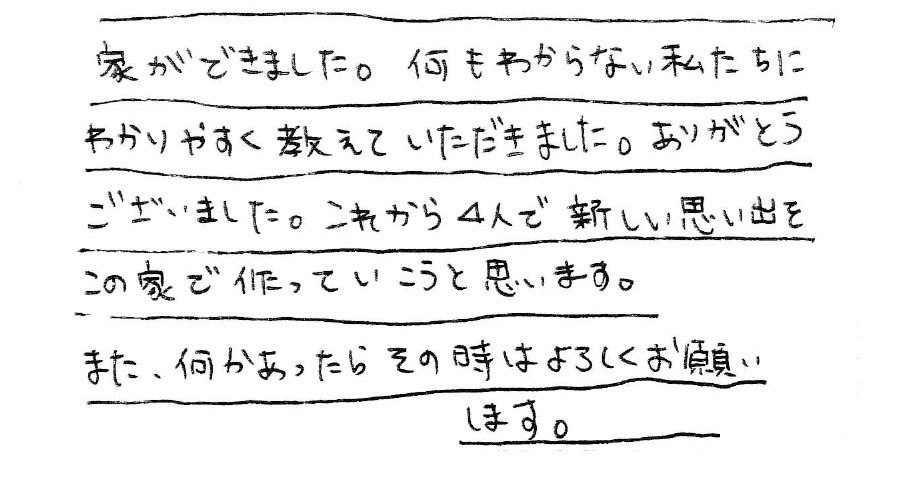 家ができました。何もわからない私たちに
わかりやすく教えていただきました。ありがとう
ございました。これから4人で新しい思い出を
この家で作っていこうと思います。
また、何かあったらその時はよろしくお願い
します。